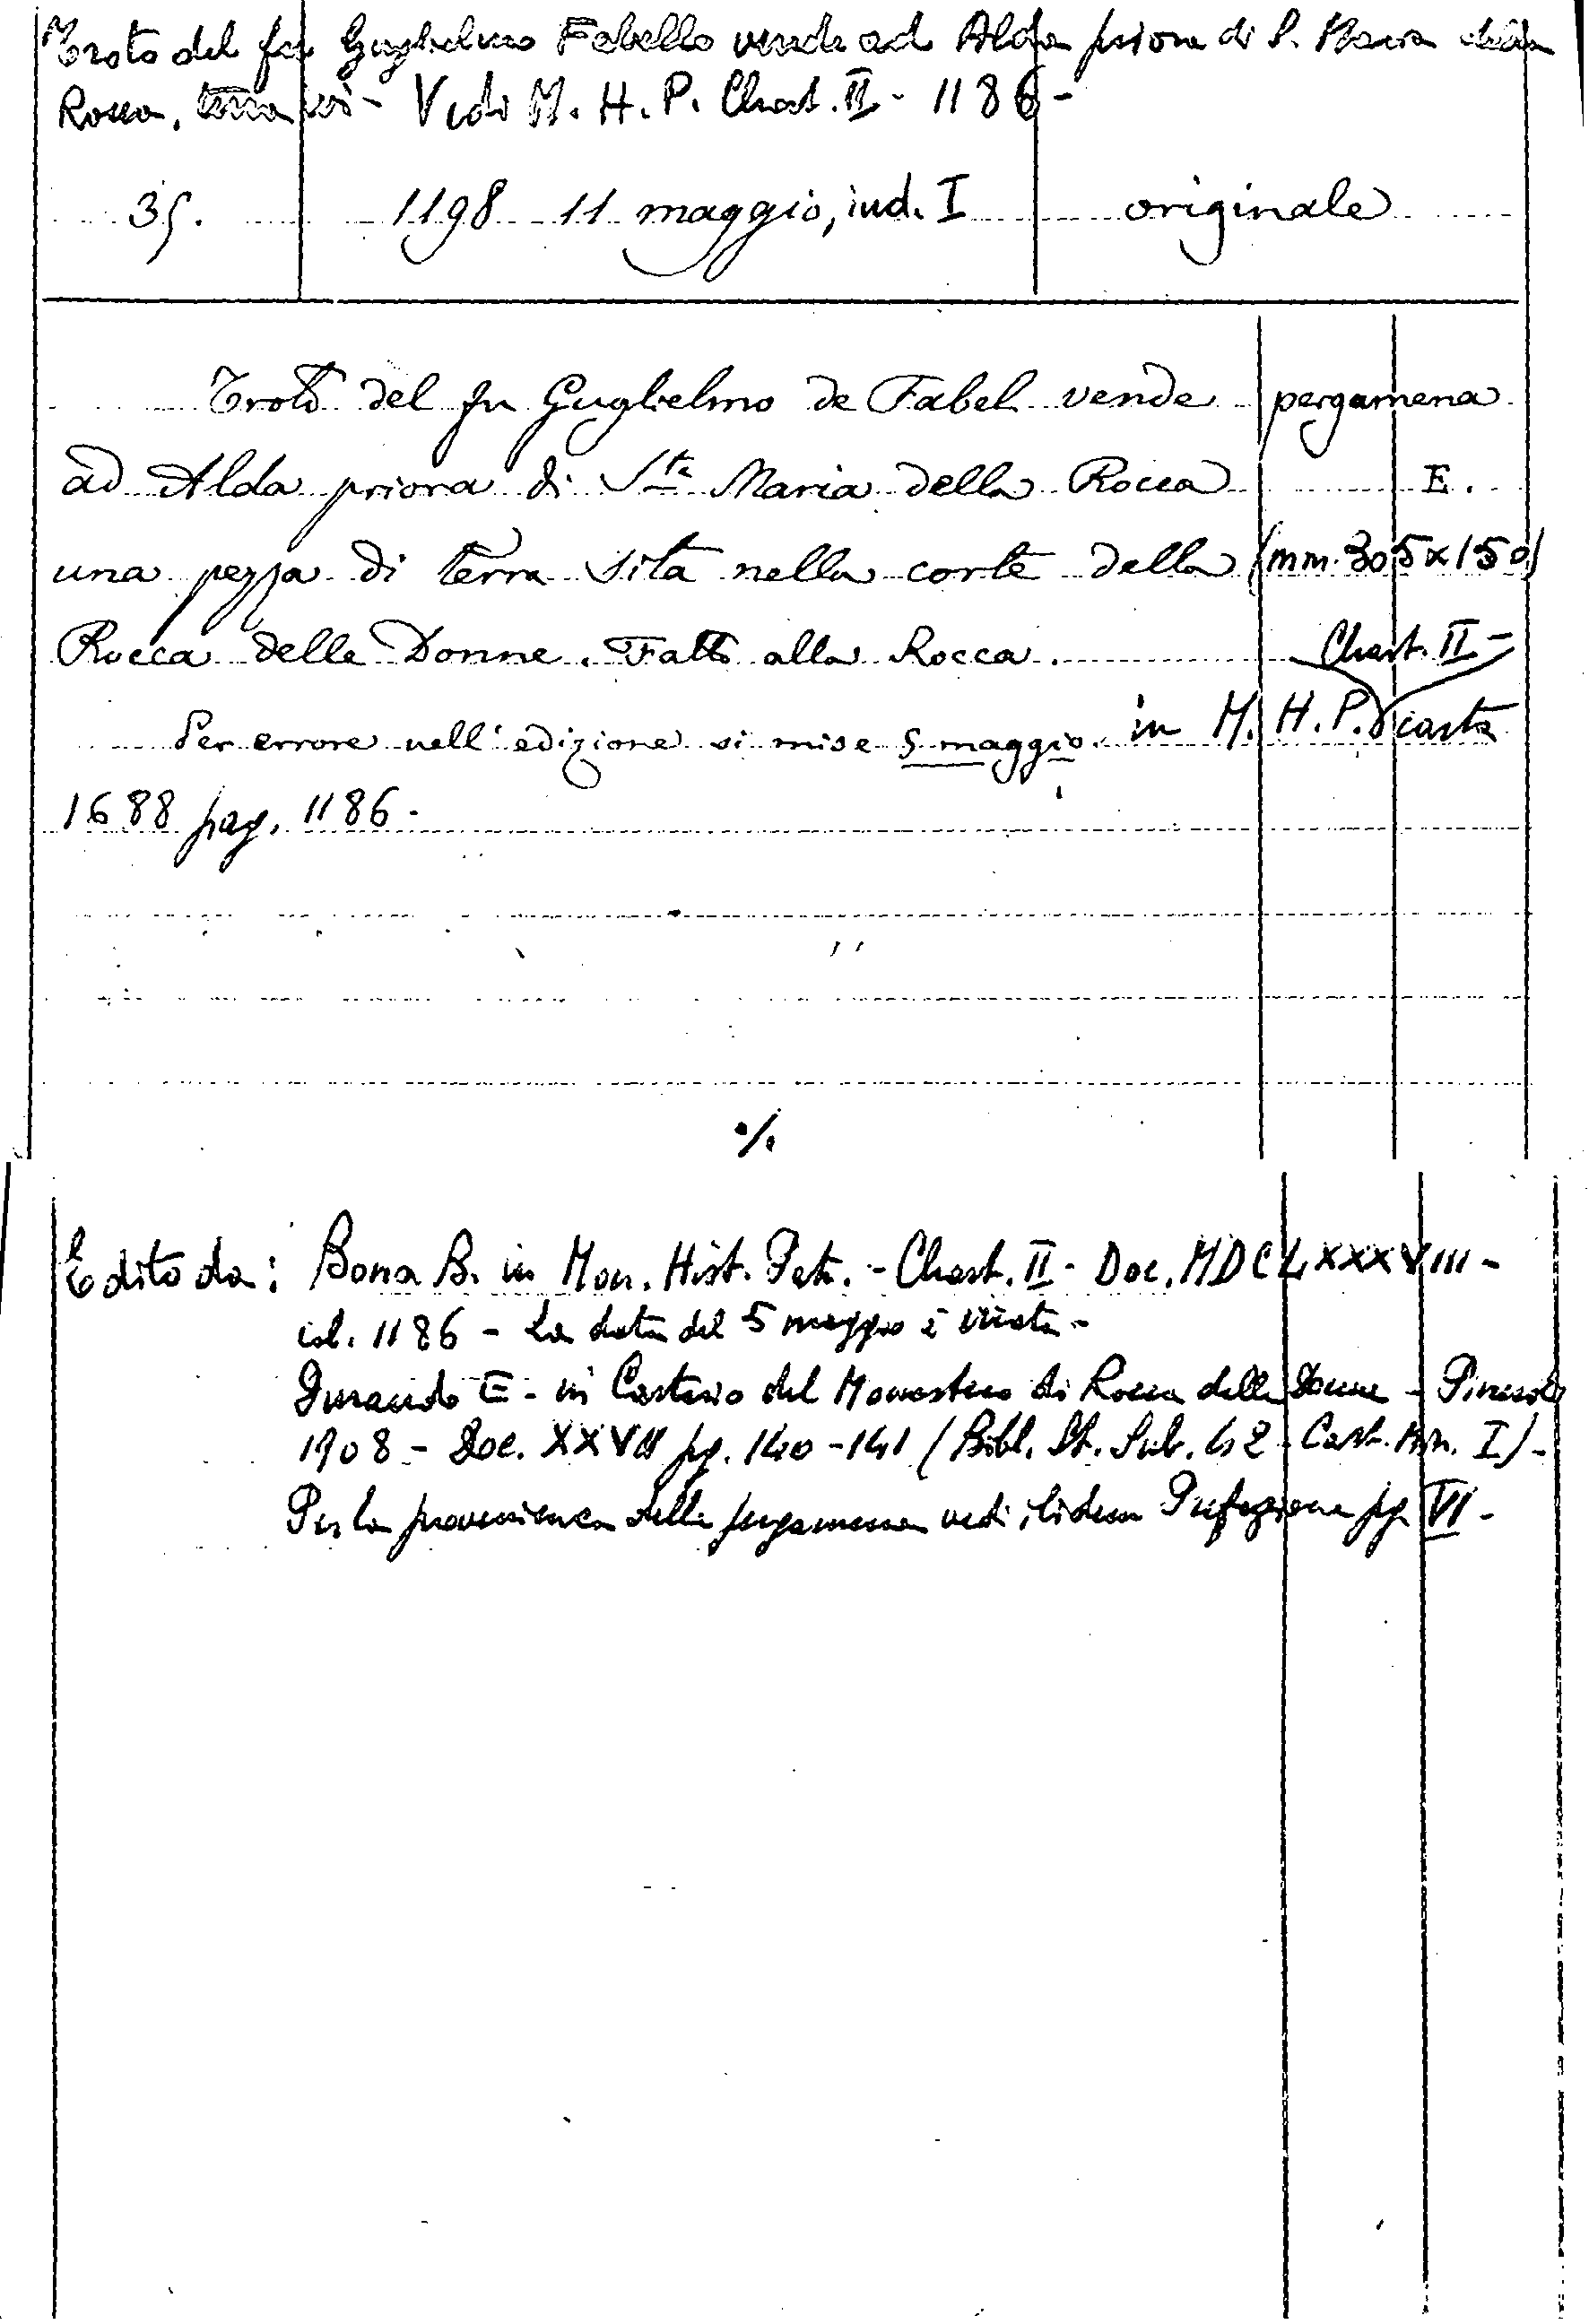 Troto del fu Guglielmo Fabello vende ad Alda priora di S. Maria della
Rocca, terra ivi - Vedi M. H. P. Chart. II - 1186 -
35. 1198 11 maggio, ind. I originale
Troto del fu Guglielmo de Fabel vende pergamena
ad Alda priora di Sta Maria della Rocca E.
una pezza di terra sita nella corte della (mm. 305 x 150)
Rocca delle Donne. Fatto alla Rocca. Chart. II -
Per errore nell'edizione si mise 5 maggio. in M. H. P. carta
1688 pag. 1186 -
./.
Edito da: Bona B. in Mon. Hist. Patr. - Chart. II - Doc. MDCLXXXVIII -
col. 1186 - La data del 5 maggio è errata -
Durando E - in Cartario del Monastero di Rocca delle Donne - Pinerolo
1908 - Doc. XXVII pg. 140-141 (Bibl. St. Sub. 42 Cart. Mon. I) -
Per la provenienza della pergamena vedi ibidem Prefazione pg. VI -